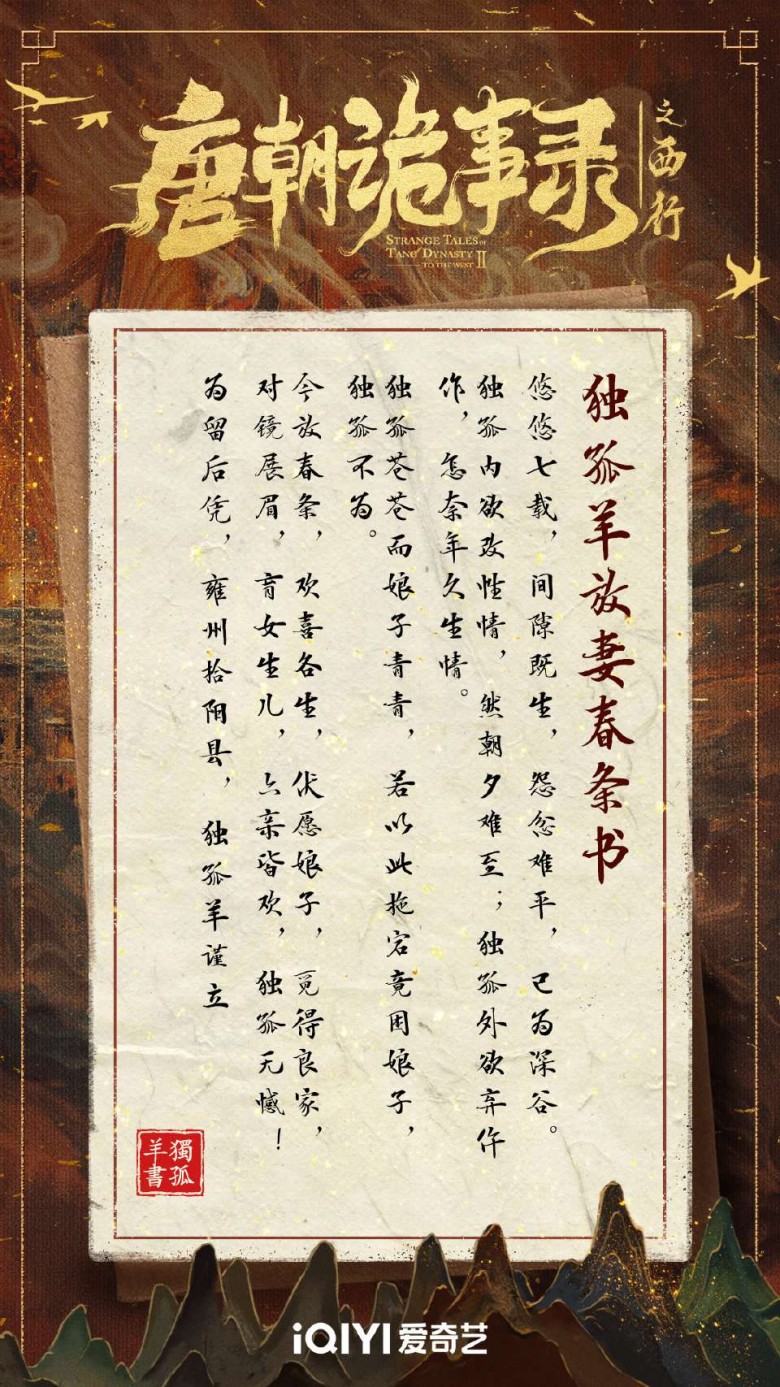 唐朝诡事录
之西行
STRANGE TALES OF
TANG DYNASTY II
TO THE WEST
独孤羊放妻春条书
悠悠七载，间隙既生，怨忿难平，已为深谷。
独孤内欲改性情，然朝夕难至；独孤外欲弃仵
作，怎奈年久生情。
独孤苍苍而娘子青青，若以此拖宕竟困娘子，
独孤不为。
今放春条，欢喜各生，伏愿娘子，觅得良家，
对镜展眉，育女生儿，六亲皆欢，独孤无憾！
为留后凭，雍州拾阳县，独孤羊谨立
獨孤
羊書
iQIYI 爱奇艺